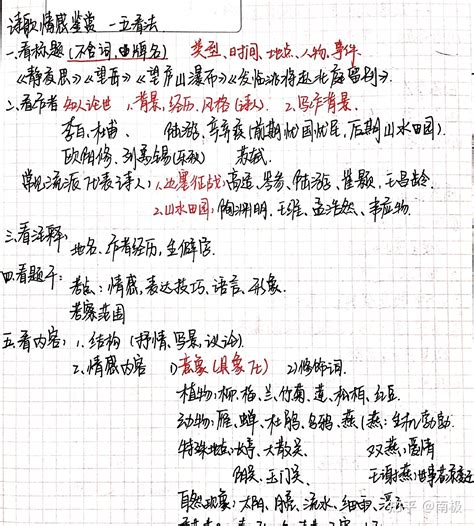 诗歌情感鉴赏 一五看法
一.看标题(不含词,曲牌名) 类型、时间、地点、人物、事件
《静夜思》《望岳》《望庐山瀑布》《发临洮将赴北庭留别》
二.看作者 知人论世 1.背景,经历,风格(诗人) 2.写作背景
李白、杜甫、 陆游、辛弃疾(前期忧国忧民,后期山水田园)
欧阳修、刘禹锡(乐秋) 苏轼
常见流派代表诗人:1.边塞征战:高适、岑参、陆游、崔颢、王昌龄
2.山水田园:陶渊明、王维、孟浩然、韦应物
三.看注释: 地名、作者经历、生僻字
四.看题干: 考点:情感,表达技巧、语言、形象
考察范围
五看内容: 1.结构(抒情、写景、议论)
2.情感内容 1)意象(具象化) 2)修饰词
植物:柳、梅、兰、竹、菊、莲、松柏、红豆
动物:雁、蝉、杜鹃、乌鸦、燕(燕:生机勃勃
特殊地点:长亭、大散关 双燕:爱情
阳关、玉门关 王谢燕:世事
自然现象:太阳、月亮、流水、细雨、
知乎 @南极